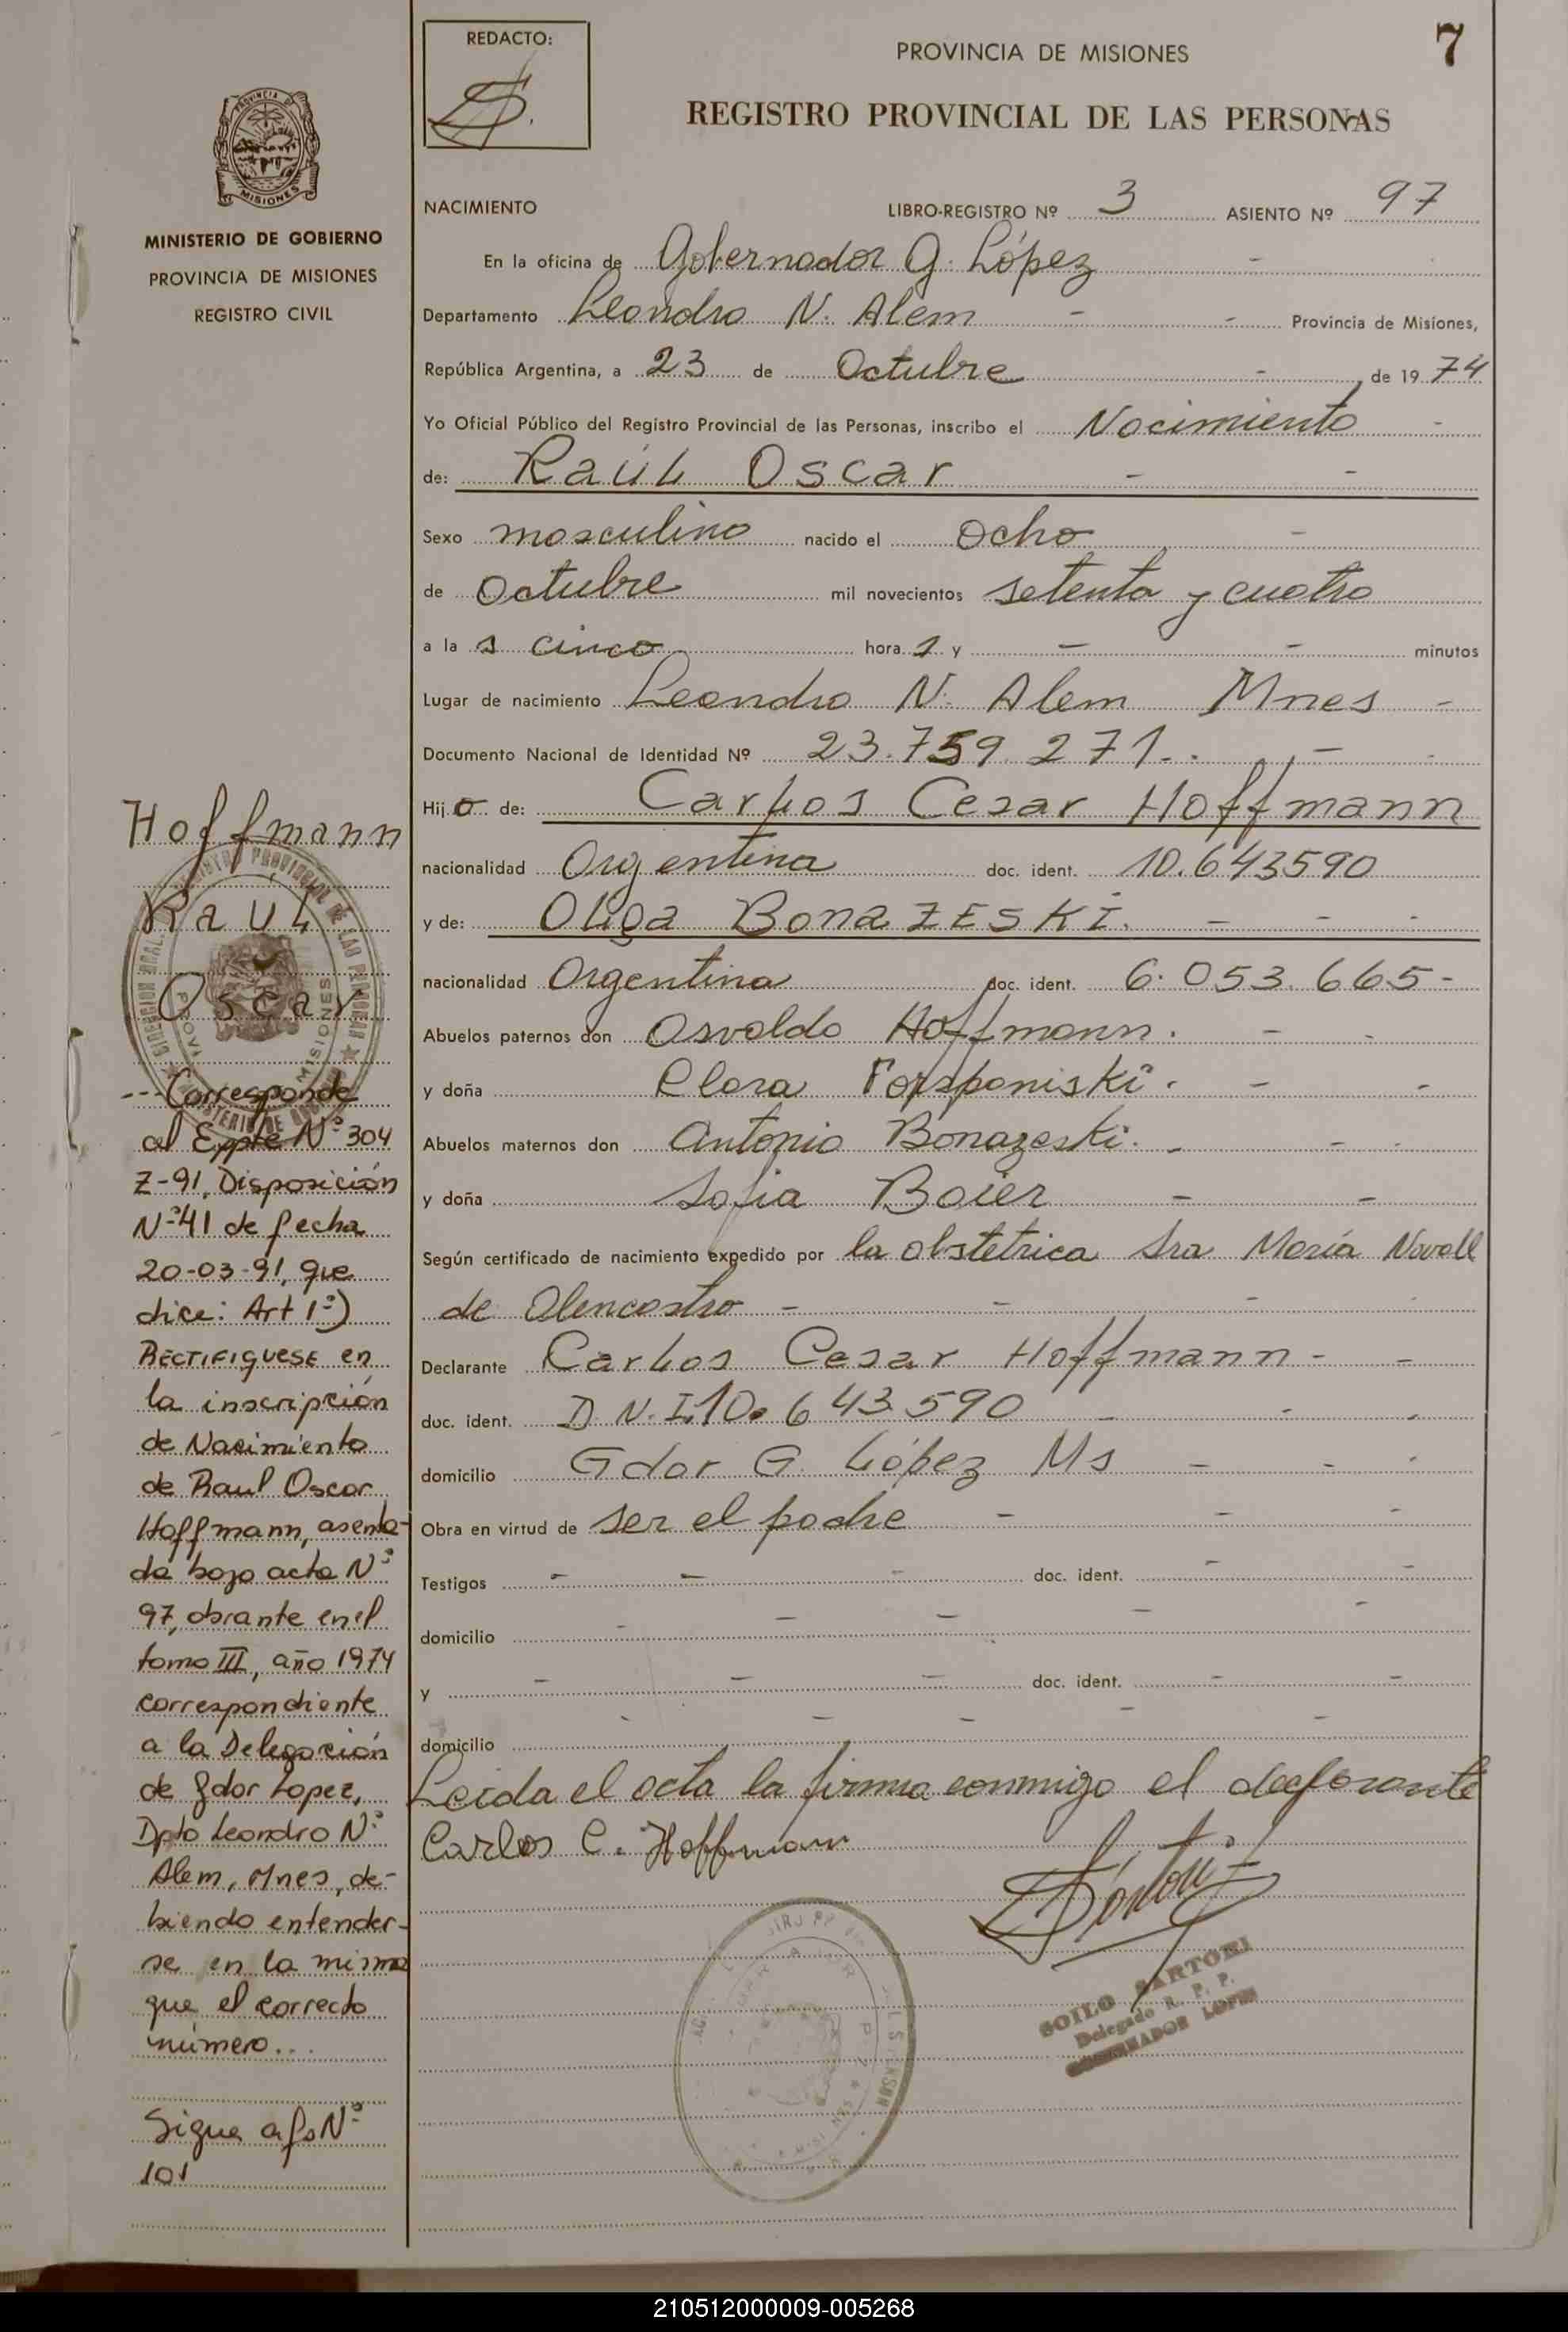 REDACTO:
PROVINCIA DE MISIONES
7
REGISTRO PROVINCIAL DE LAS PERSONAS
PROVINCIA DE
MISIONES
MINISTERIO DE GOBIERNO
PROVINCIA DE MISIONES
REGISTRO CIVIL
NACIMIENTO LIBRO-REGISTRO Nº 3 ASIENTO Nº 97
En la oficina de Gobernador G. López -
Departamento Leandro N. Alem - - Provincia de Misiones,
República Argentina, a 23 de Octubre - de 19 74
Yo Oficial Público del Registro Provincial de las Personas, inscribo el Nacimiento -
de: Raúl Oscar - -
Sexo masculino nacido el ocho -
de octubre mil novecientos setenta y cuatro
a la s cinco hora s y - - minutos
Lugar de nacimiento Leandro N. Alem Mnes -
Documento Nacional de Identidad Nº 23.759.271. - -
Hij o de: Carlos Cesar Hoffmann
nacionalidad Argentina doc. ident. 10.643590
y de: Olga BonaZESKi. - - -
nacionalidad Argentina doc. ident. 6.053.665-
Abuelos paternos don Osvaldo Hoffmann. - -
y doña Clara Forsponiski. - -
Abuelos maternos don Antonio Bonazeski. - - -
y doña Sofia Baier - -
Según certificado de nacimiento expedido por la obstetrica Sra María Navall
de Alencastro - - -
Declarante Carlos Cesar Hoffmann - -
duc. ident. D.N.I.10.643.590 - - -
domicilio Gdor G. López Ms - - -
Obra en virtud de ser el padre - - -
Testigos - - - doc. ident. - -
domicilio - - - - -
y - - - doc. ident. - -
domicilio - - - - -
Leida el acta la firma conmigo el declarante
Carlos C. Hoffmann
Sartori
SOILO SARTORI
Delegado R. P. P.
GOBERNADOR LOPEZ
Hoffmann
Raúl
Oscar
---Corresponde
al Expte Nº 304
Z-91, Disposición
Nº 41 de fecha
20-03-91, que
dice: Art 1º)
RECTIFIQUESE en
la inscripción
de Nacimiento
de Raul Oscar
Hoffmann, asenta-
da bajo acta Nº
97, obrante en el
tomo III, año 1974
correspondiente
a la Delegación
de Gdor Lopez,
Dpto Leandro Nº
Alem, Mnes, de-
biendo entender-
se en la misma
que el correcto
número...
Sigue a fs Nº
101
210512000009-005268